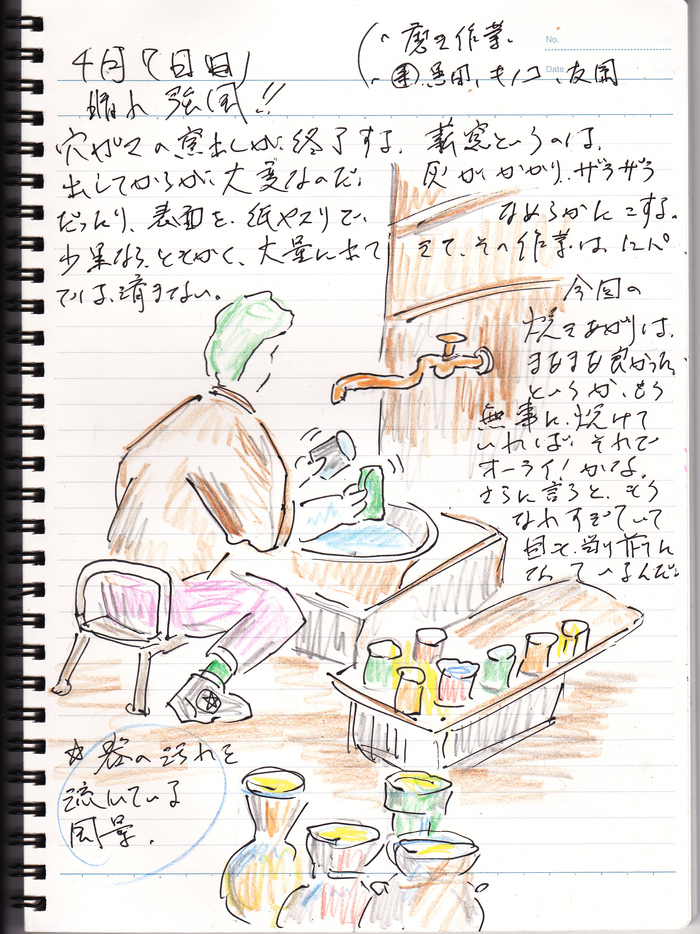 4月7日(日)
晴れ 強風!!
・磨き作業、
・黒田、キノコ、友国
No.
Date
穴がまの窯出しが、終了する。薪窯というのは、
出してからが、大変なのだ。灰がかかり、ザラザラ
だったり、表面を、紙ヤスリで、なめらかにこする。
少量なら、ともかく、大量に出て
きて、その作業は
では、済まない。
今回の
焼きあがりは、
まあまあ良かった。
というか、もう
無事に、焼けて
いれば、それで
オーライ!かな。
さらに言うと、もう
なれすぎていて
当り前に
なっているんだ。
☆器の汚れを
流している
風景。